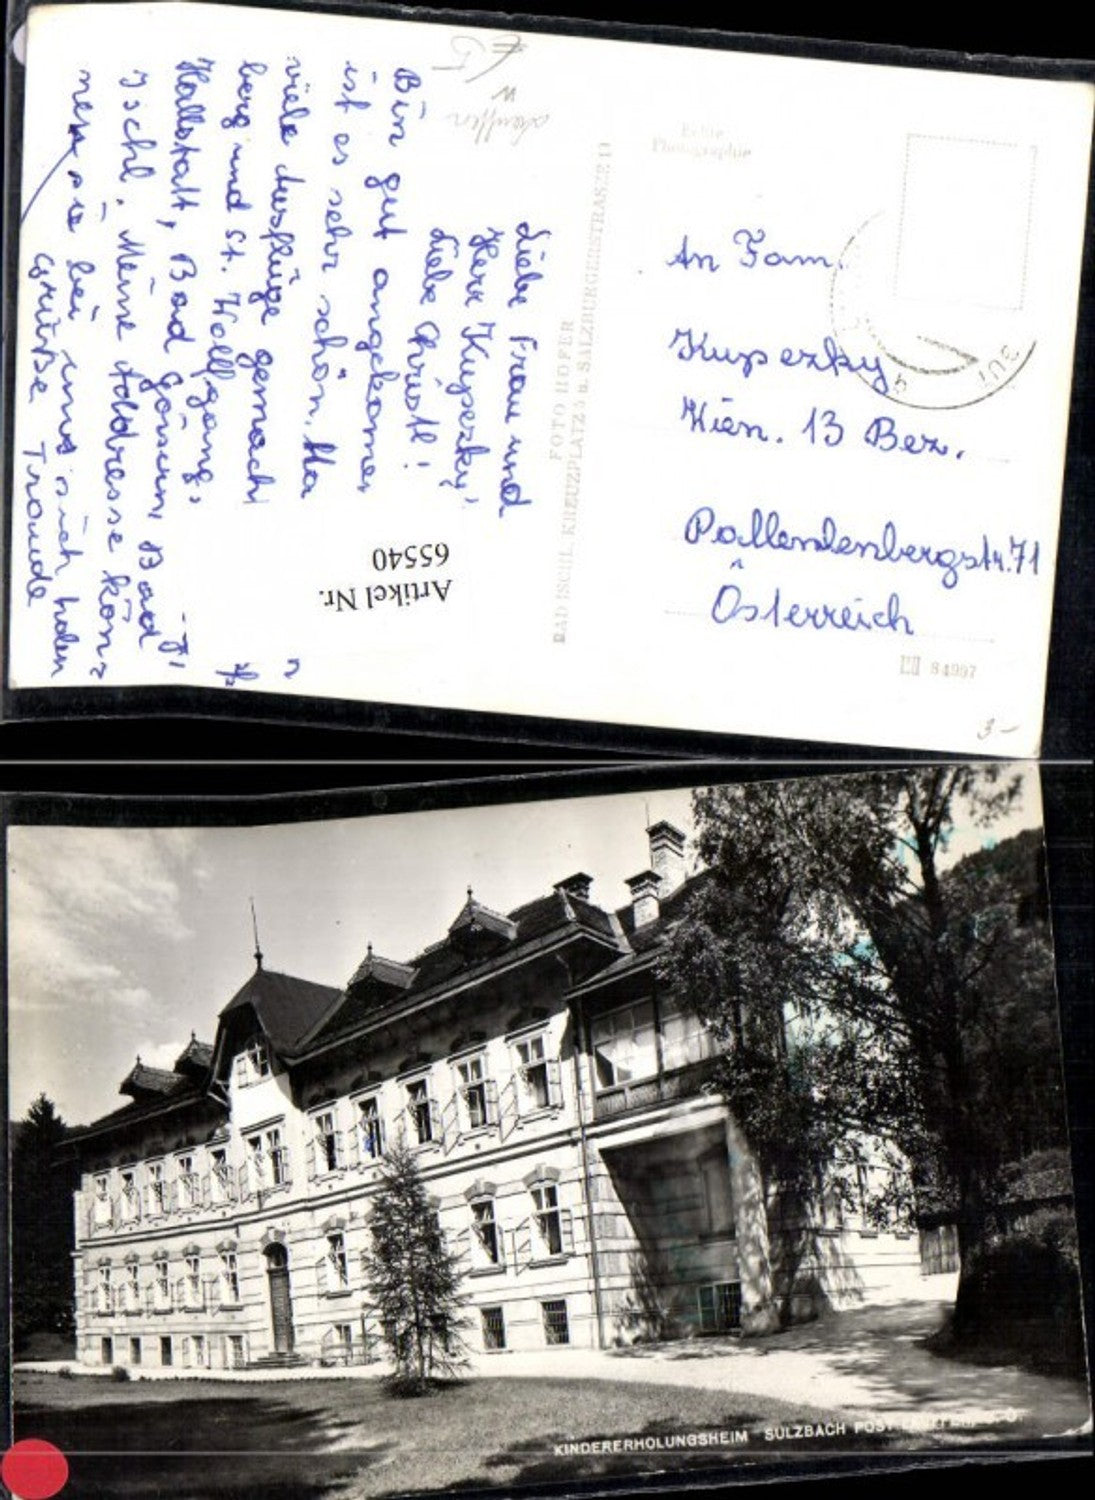 Liebe Frau und
Herr Kupezky!
Liebe Christl!
Bin gut angekomen
ist es sehr schön. Ha
viele Ausflüge gemacht
berg und St. Wolfgang,
Hallstatt, Bad Goisern, Bad
Ischl. Meine Addresse kön=
nen sie bei uns sich holen
Grüße Traude
Lauffen
W
Artikel Nr.
65540
FOTO HOFER
BAD ISCHL, KREUZPLATZ 5 u. SALZBURGERSTRASZE
Echte
Photographie
An Fam.
Kupezky
Wien. 13 Bez.
Österreich
84997
3.-
KINDERERHOLUNGSHEIM SULZBACH POST LAUFFEN, O.Ö.